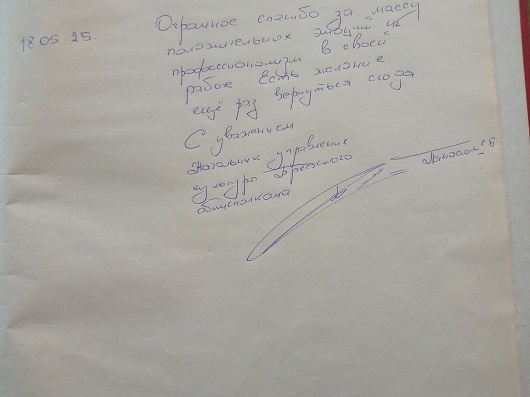 18.05.25.
Огромное спасибо за массу
положительных эмоций и
профессионализм в своей
работе. Есть желание
ещё раз вернуться сюда.
С уважением
Начальник управления
культуры Брестского
облисполкома